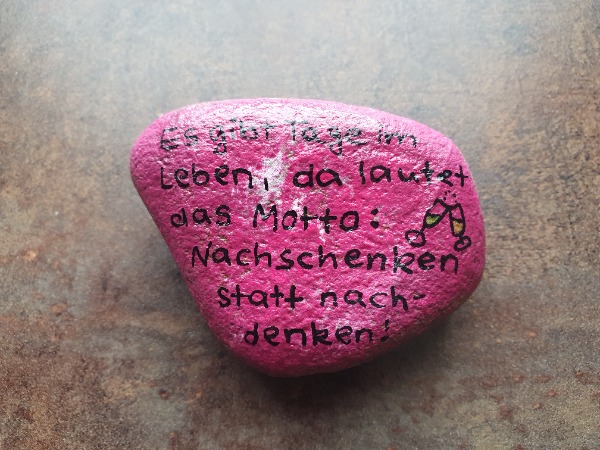 Es gibt Tage im
Leben, da lautet
das Motto:
Nachschenken
statt nach-
denken!